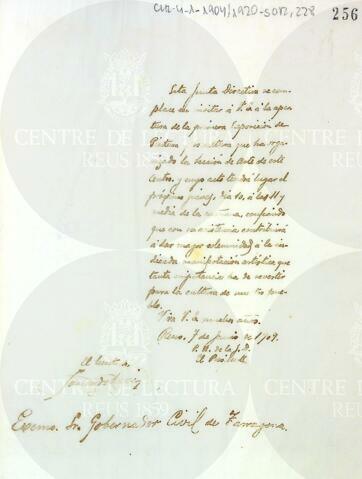 CLR-4-1-1904/1920-5012,228
256
Esta Junta Directiva se com-
place en invitar á V. á la aper-
tura de la primera Exposición de
Pintura que ha orga-
nizado la Sección de Arte de este
Centro, y cuyo acto tendrá lugar el
próximo jueves, día 10, á las 11 y
media de la mañana, confiando
que con su asistencia contribuirá
á dar mayor solemnidad á la in-
dicada manifestación artística que
tanta importancia ha de revestir
para la cultura de nuestro pue-
blo.
Viva V. muchos años.
Reus, 7 de Junio de 1909.
P. A. de la J. D.
El Presidente
Excmo. Sr. Gobernador Civil de Tarragona.
CENTRE DE LECTURA
REUS 1859
CENTRE DE LECTURA
REUS 1859